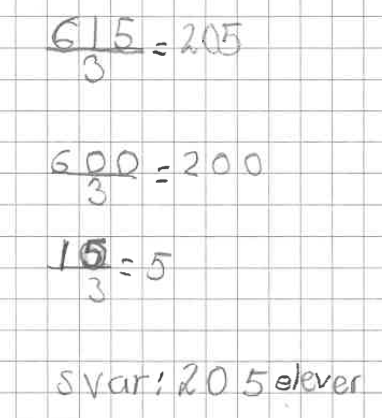 615/3 = 205
600/3 = 200
15/3 = 5
svar: 205 elever